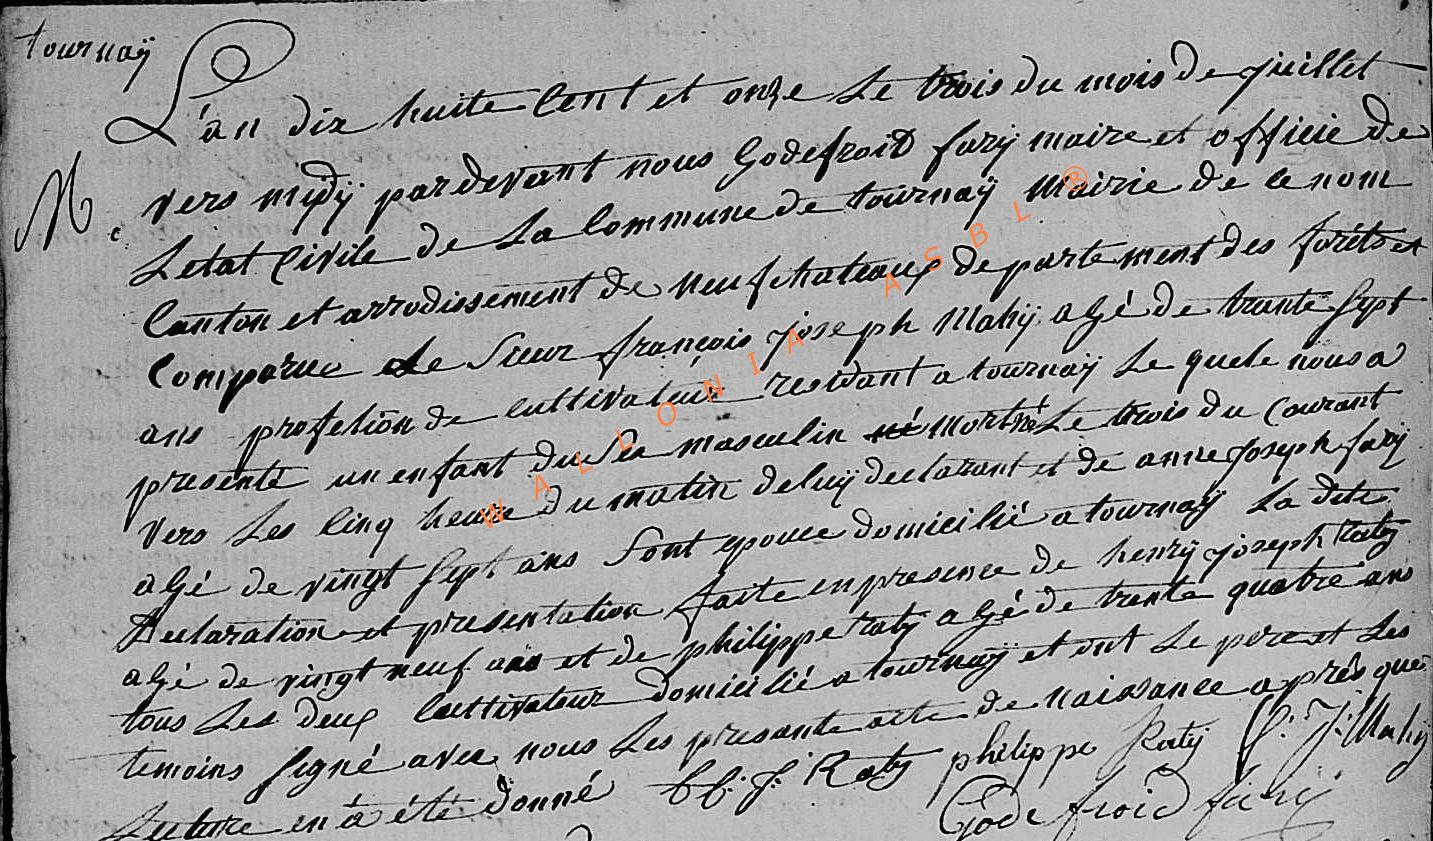 tournaÿ
L'an dix huite Cent et onze Le trois du mois de juillet
N. vers midÿ pardevant nous Godefroid farÿ maire et officie de
Letat Civile de La Commune de tournaÿ Mairie de ce nom
Canton et arrodissement de Neufchateaux departement des forêts et
Comparue Le Sieur françois joseph Mahÿ agé de trante sept
ans profetion de Cultivateur residant a tournaÿ Le quele nous a
presenté un enfant du Sex masculin né mortné Le trois du Courant
vers Les Cinq heure du matin de luÿ declarant et de anne joseph farÿ
agé de vingt sept ans Sont epouce domicilié a tournaÿ La dite
Declaration et presentation faite en presence de henrÿ joseph Ratÿ
agé de vingt neuf ans et de philippe Ratÿ agé de trante quatre ans
tous Les deux Cultivateur domicilié a tournaÿ et ont Le pere et Les
temoins signé avec nous Les presante acte de naissance après que
Lecture en à été donné H. J. Ratÿ philippe Ratÿ f. J. Mahÿ
Godefroid farÿ
WALLONIA ASBL ®